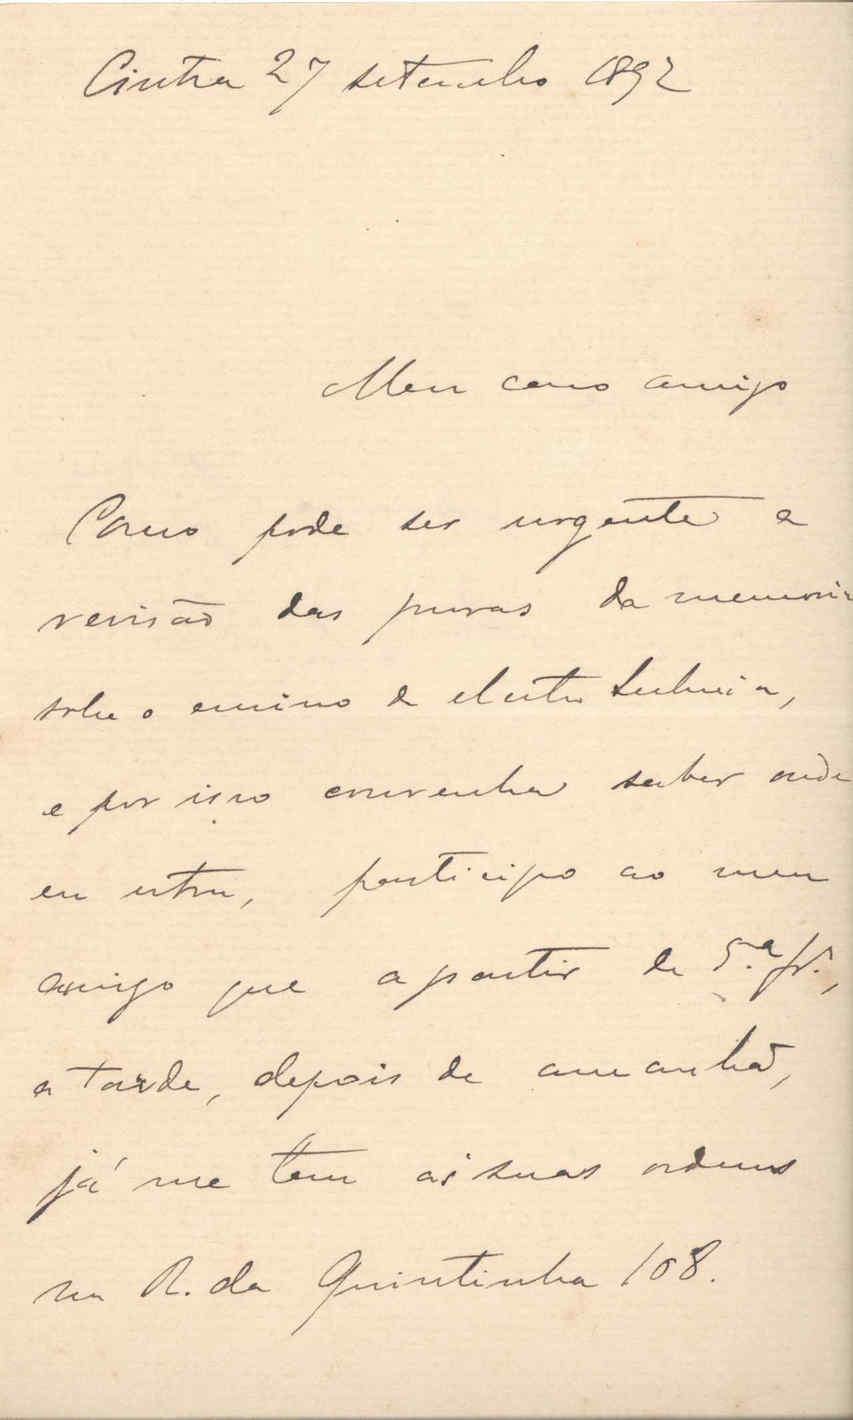 Cintra 27 setembro 1892
Meu caro amigo
Como pode ser urgente a
revisão das provas da memoria
sobre o ensino de electrotechnia,
e por isso convenha saber onde
eu estou, participo ao meu
amigo que a partir de 5.ª fr.ª,
a tarde, depois de amanhã,
já me tem ás suas ordens
na R. da Quintinha 108.